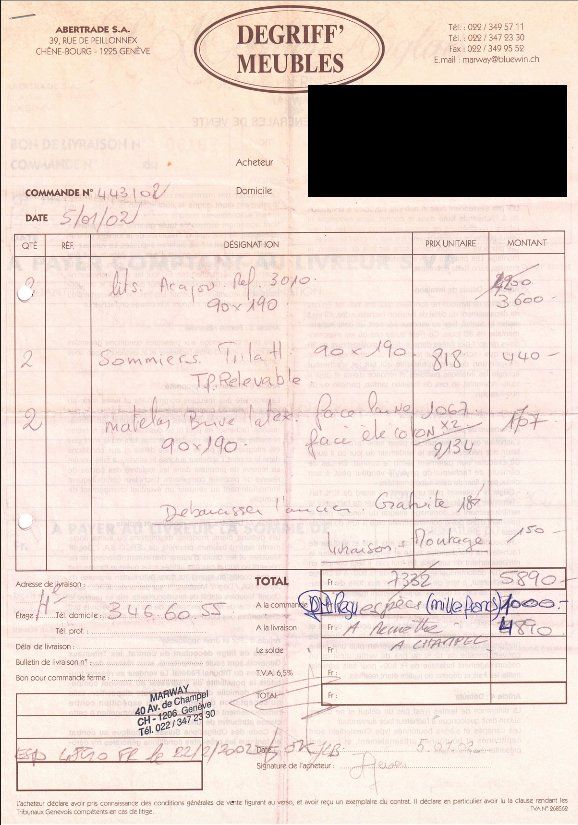 ABERTRADE S.A.
39, RUE DE PEILLONNEX
CHÊNE-BOURG - 1225 GENÈVE
DEGRIFF'
MEUBLES
Tél. : 022 / 349 57 11
Tél. : 022 / 347 23 30
Fax : 022 / 349 95 52
E.mail : marway@bluewin.ch
Acheteur
COMMANDE N° 443/02
Domicile
DATE 5/01/02
QTÉ RÉF. DÉSIGNATION PRIX UNITAIRE MONTANT
2 lits Acajou Ref. 3010 4200
90 x 190 3600 -
2 Sommiers 90 x 190 818 440 -
TP. Relevable
2 matelas latex face laine 1067
90 x 190 face été coton x2
2134
Debarasser l'ancien. Gratuite
Livraison + Montage 150 -
Adresse de livraison :
TOTAL Fr : 7332 5890 -
A la commande espèces (mille francs) 1000.-
Étage : Tél. domicile : 346.60.55
Tél. prof. :
A la livraison Fr : A remettre 4890
A CHAMPEL
Délai de livraison :
Le solde Fr :
Bulletin de livraison n° :
T.V.A. 6,5% Fr :
Bon pour commande ferme :
TOTAL Fr :
MARWAY
40 Av. de Champel
CH - 1206 Genève
Tél. 022 / 347 23 30
Date : 5.01.02
Signature de l'acheteur :
L'acheteur déclare avoir pris connaissance des conditions générales de vente figurant au verso, et avoir reçu un exemplaire du contrat. Il déclare en particulier avoir lu la clause rendant les
Tribunaux Genevois compétents en cas de litige.
TVA N° 268562